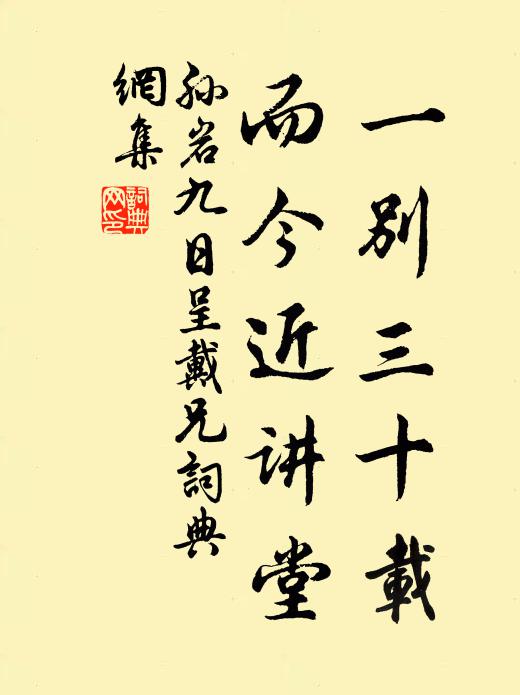 一别三十載
而今近讲堂
孙岩九日呈戴兄詞典
網集
詞典网印